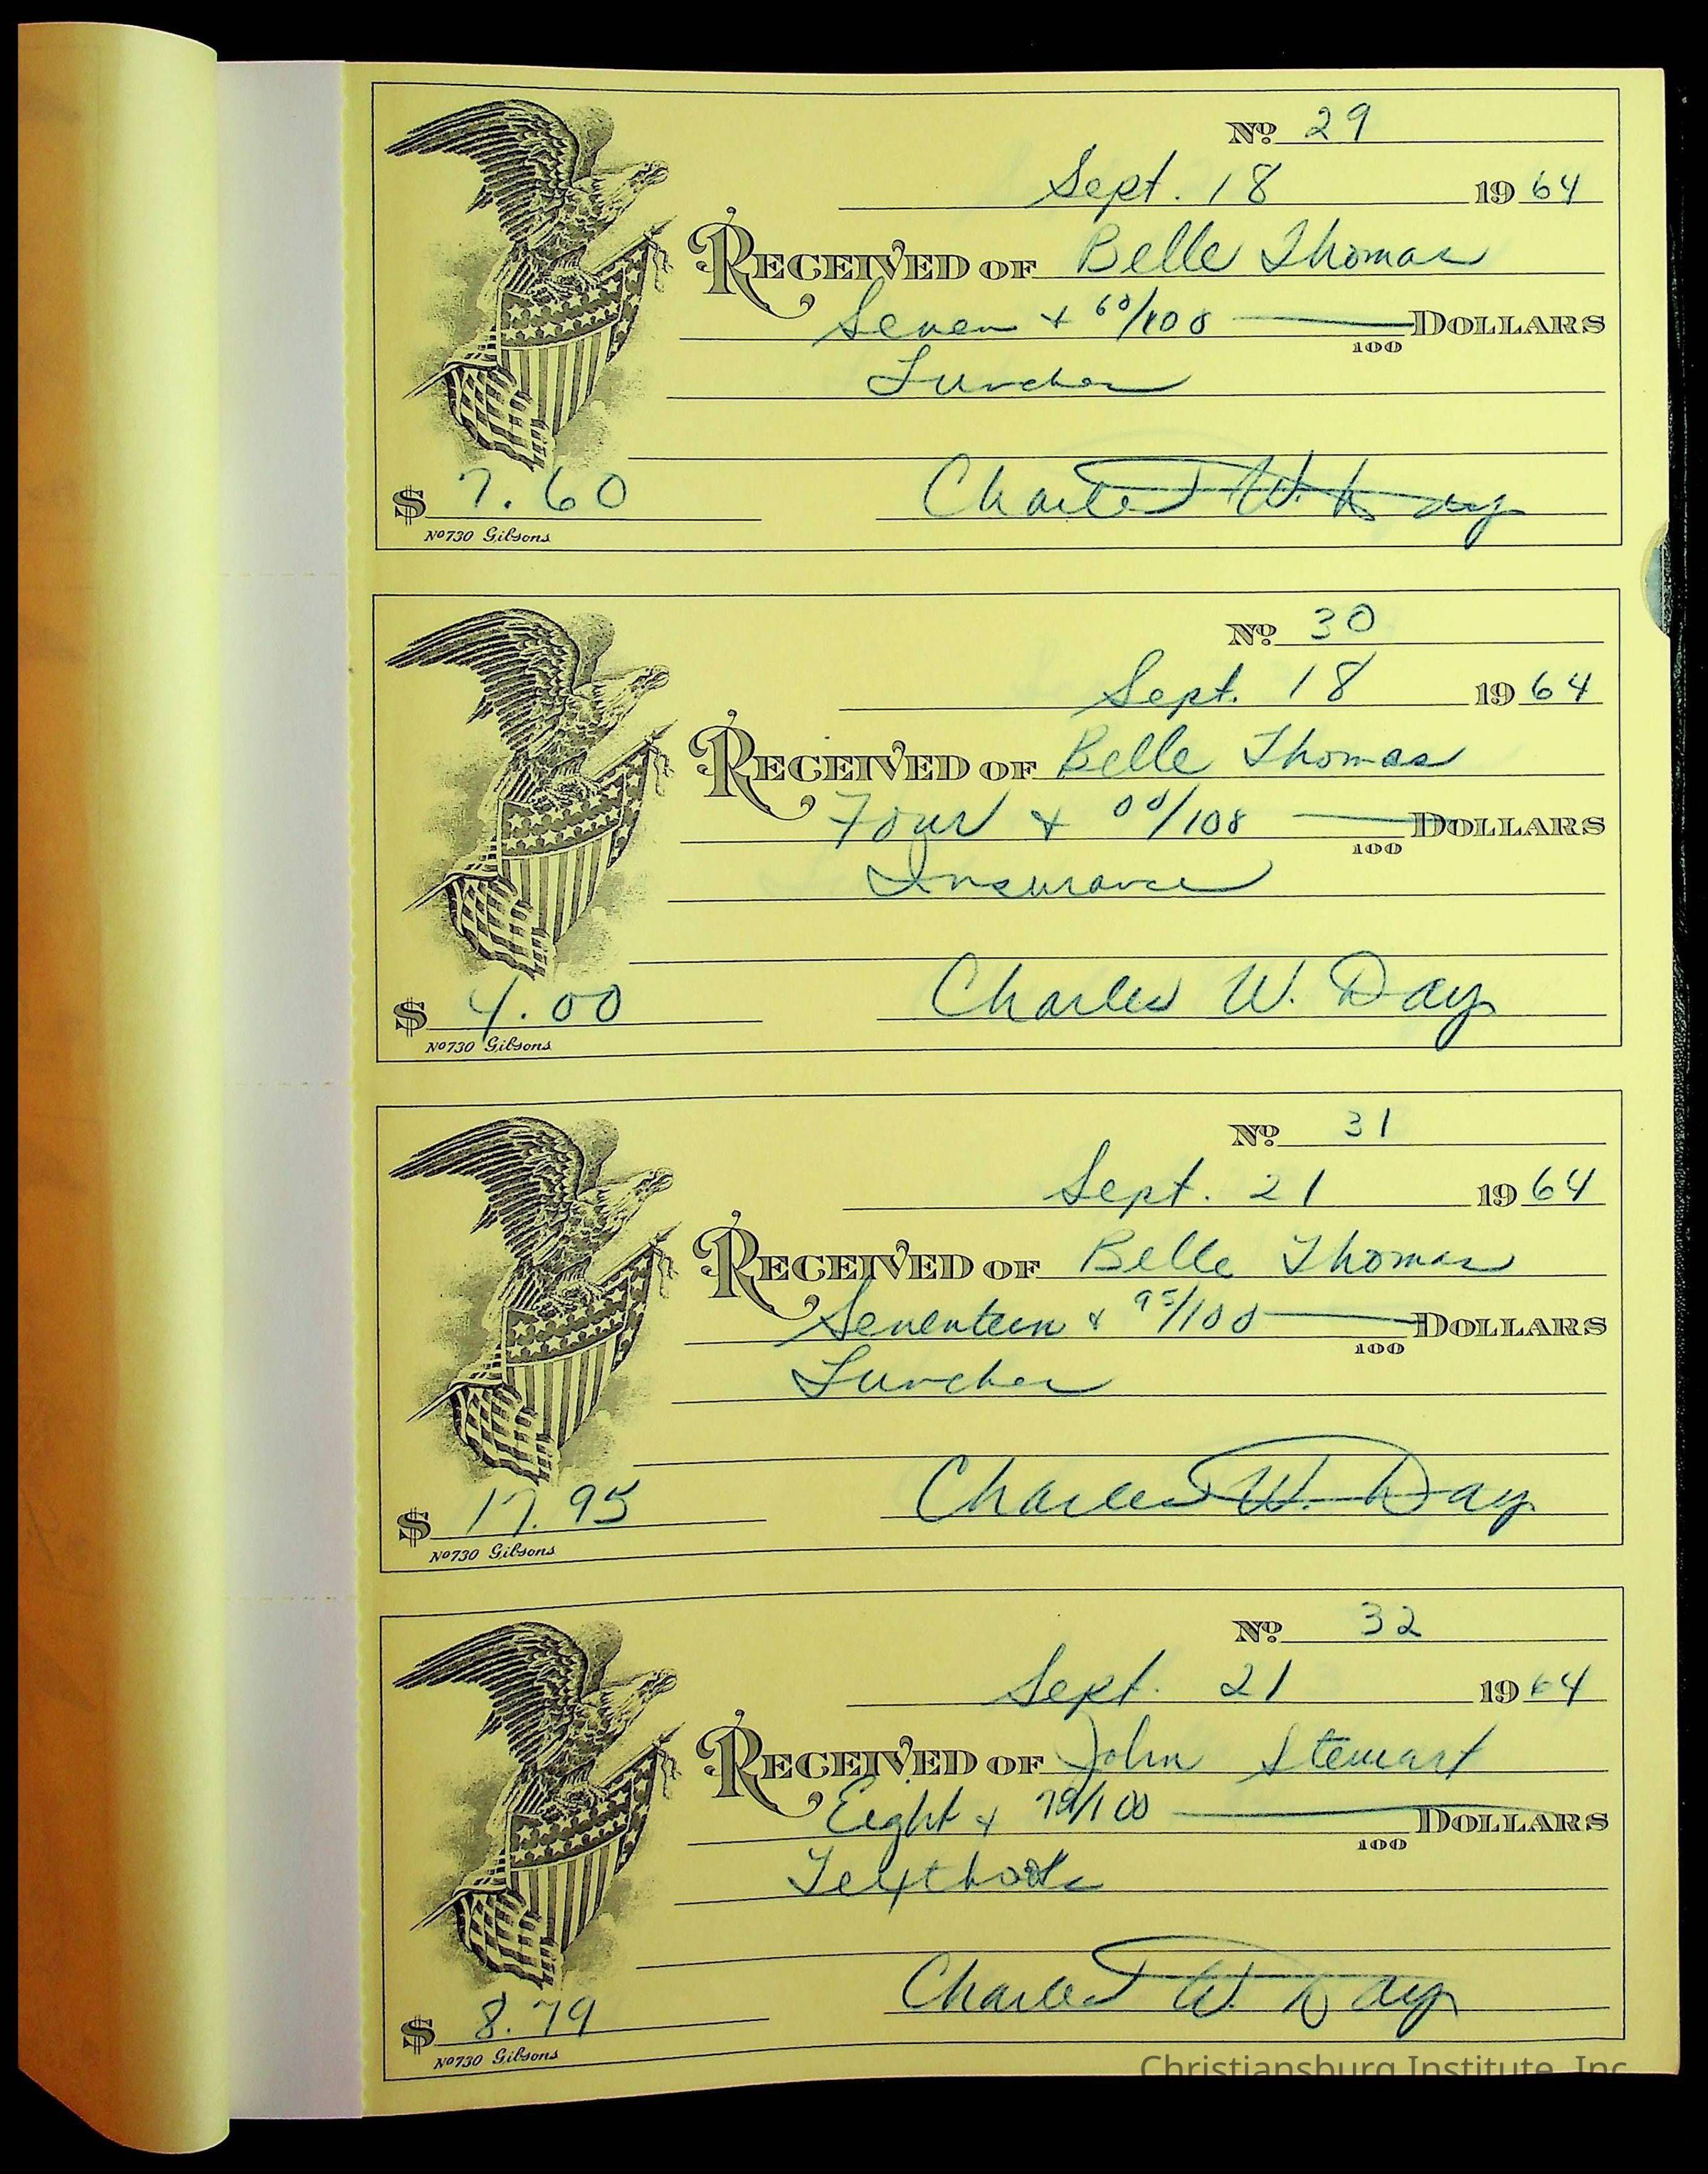 Nº 29
Sept. 18 1964
RECEIVED OF Belle Thomas
Seven + 60/100 DOLLARS
100
Lunches
$ 7.60 Charles W. Day
Nº 730 Gibsons
Nº 30
Sept. 18 1964
RECEIVED OF Belle Thomas
Four + 00/100 DOLLARS
100
Insurance
$ 4.00 Charles W. Day
Nº 730 Gibsons
Nº 31
Sept. 21 1964
RECEIVED OF Belle Thomas
Seventeen + 95/100 DOLLARS
100
Lunches
$ 17.95 Charles W. Day
Nº 730 Gibsons
Nº 32
Sept. 21 1964
RECEIVED OF John Stewart
Eight + 79/100 DOLLARS
100
Textbooks
$ 8.79 Charles W. Day
Nº 730 Gibsons
Christiansburg Institute, Inc.